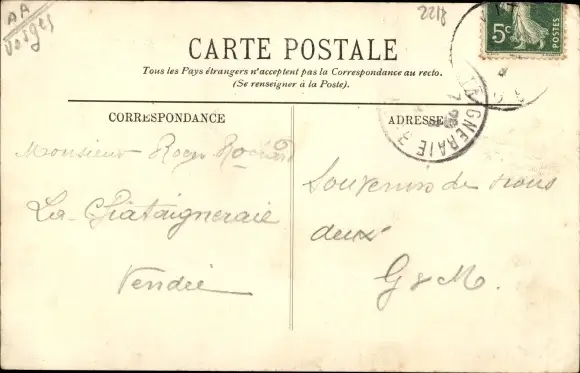 AA
Vosges
2218
5c
POSTES
CARTE POSTALE
Tous les Pays étrangers n'acceptent pas la Correspondance au recto.
(Se renseigner à la Poste).
CORRESPONDANCE
ADRESSE
TAIGNERAIE
Monsieur
La Chataigneraie
Vendée
Souvenirs de nous
deux
G & M.